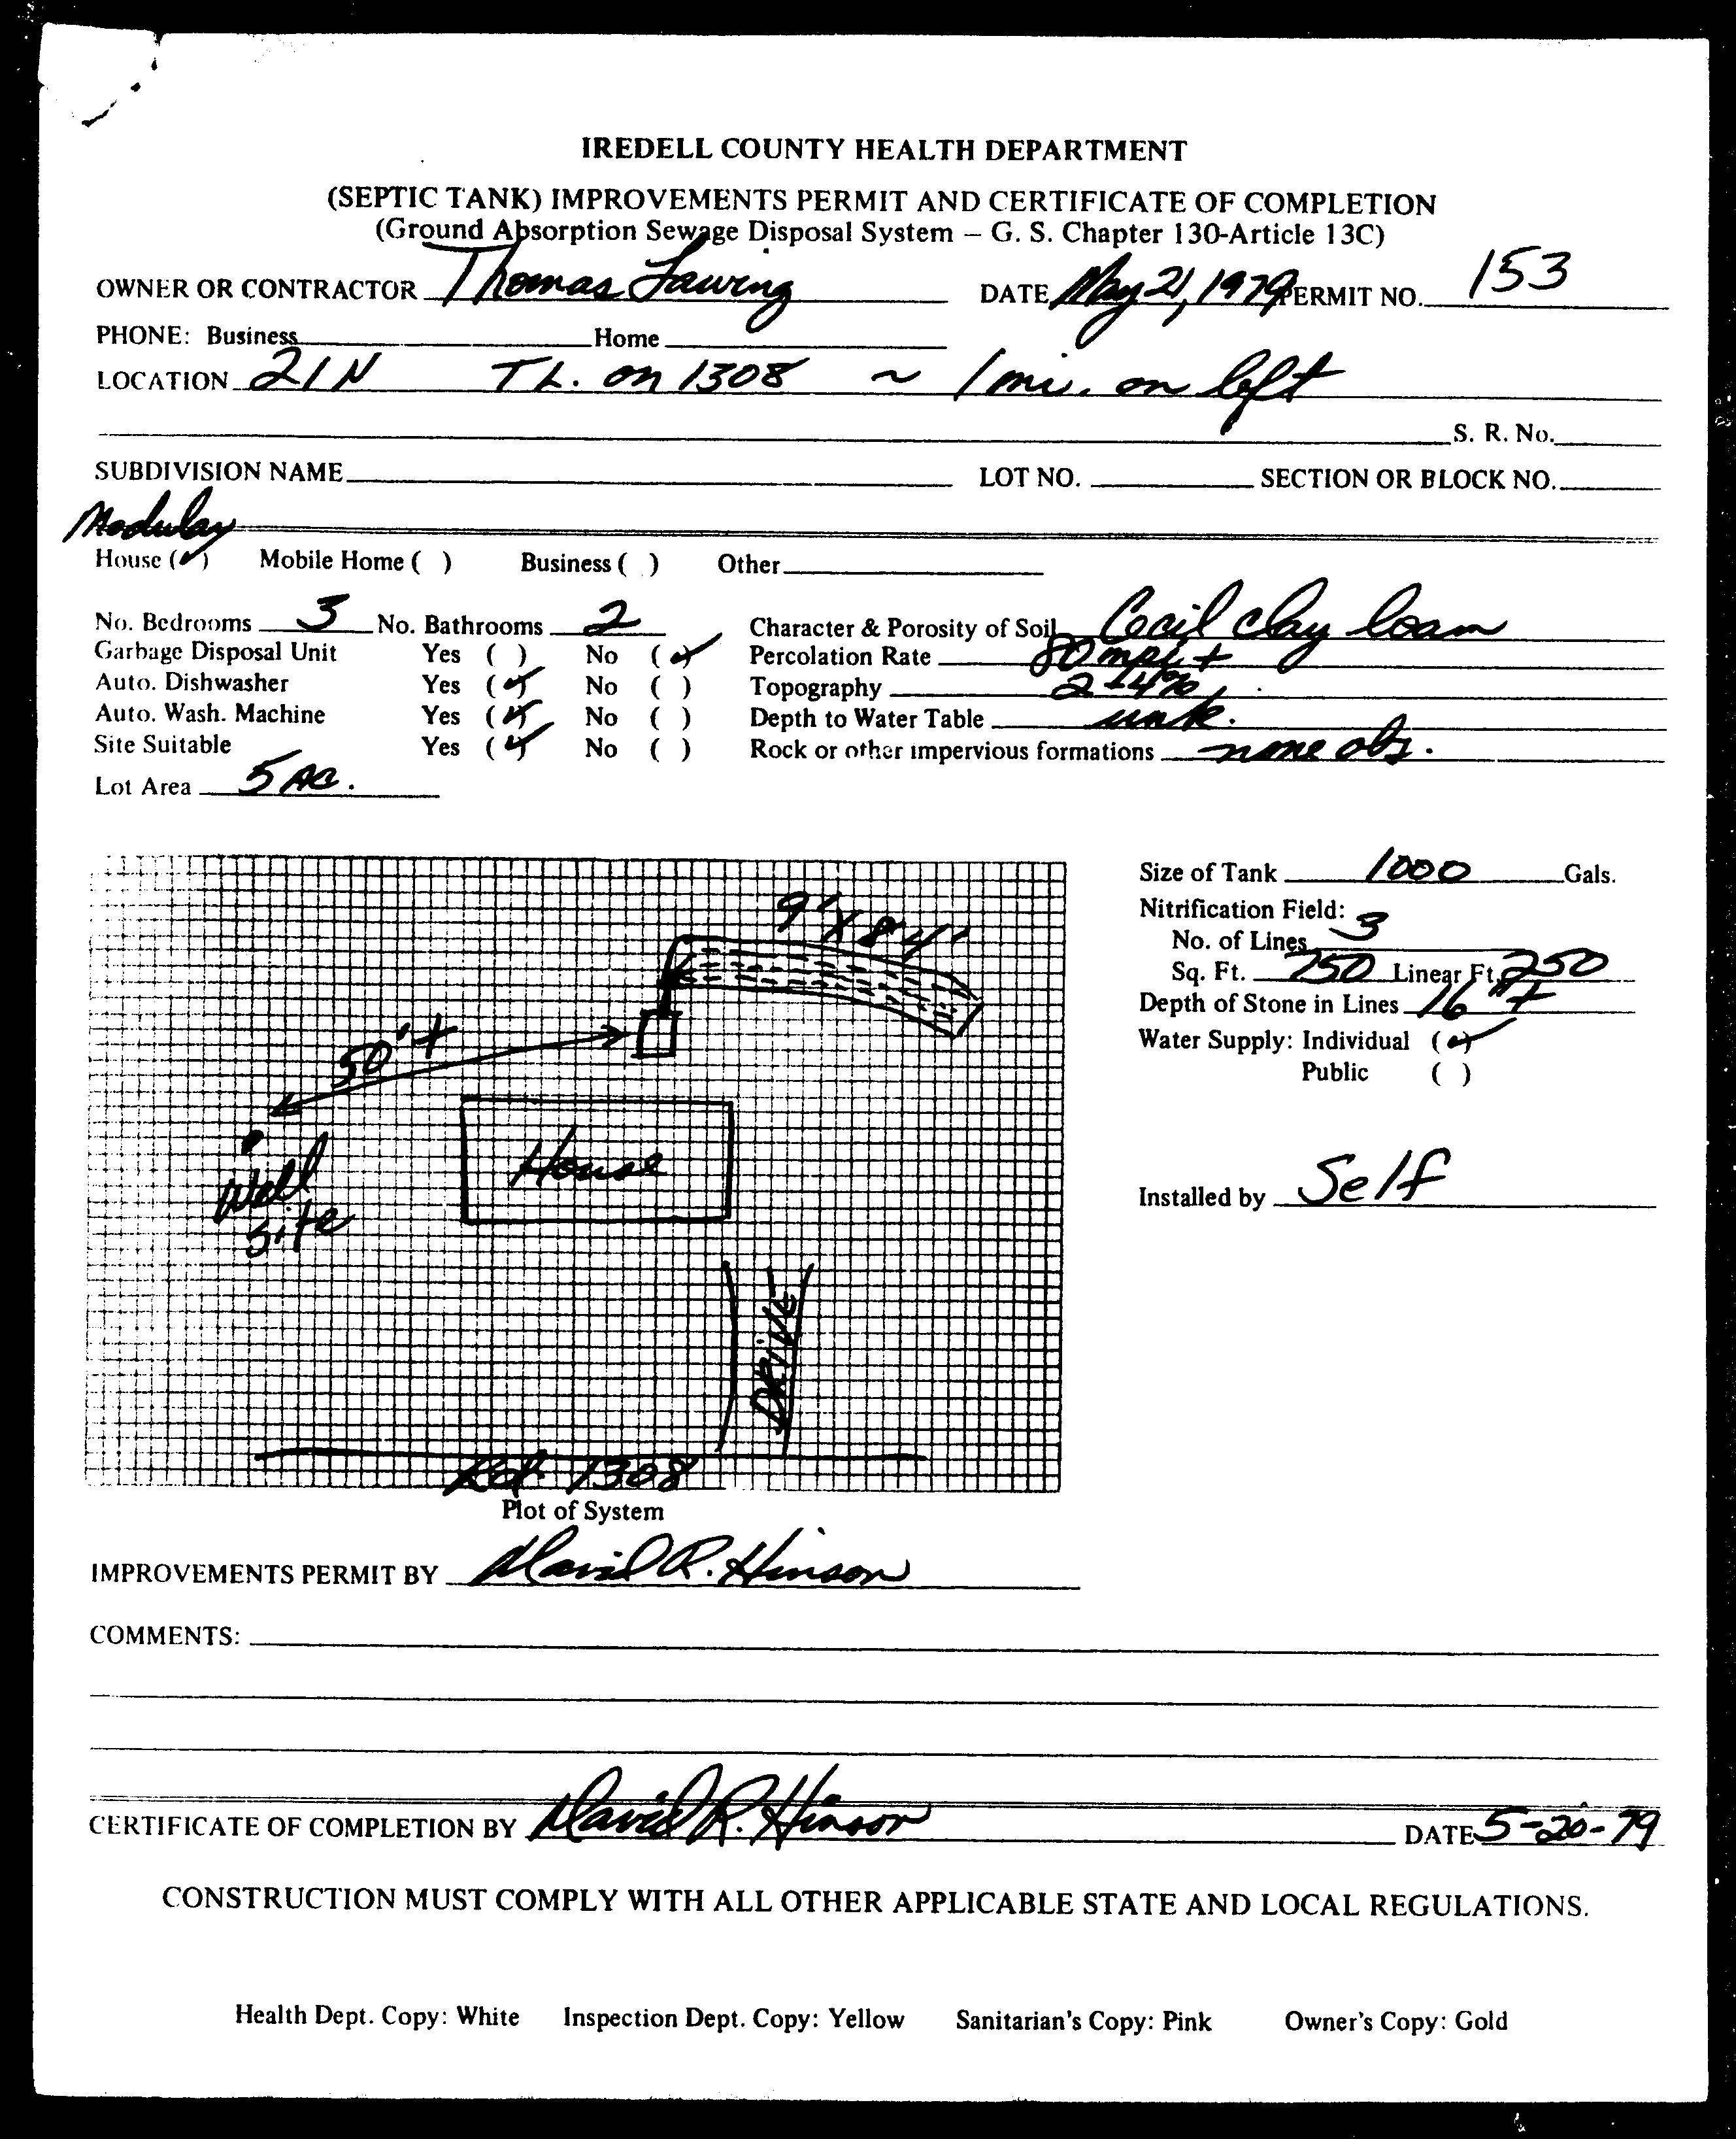 IREDELL COUNTY HEALTH DEPARTMENT
(SEPTIC TANK) IMPROVEMENTS PERMIT AND CERTIFICATE OF COMPLETION
(Ground Absorption Sewage Disposal System – G. S. Chapter 130-Article 13C)
OWNER OR CONTRACTOR Thomas Lawing DATE May 21, 1979 PERMIT NO. 153
PHONE: Business Home
LOCATION 21N TL. on 1308 ~ 1 mi. on left
S. R. No.
SUBDIVISION NAME LOT NO. SECTION OR BLOCK NO.
Modular
House (✓) Mobile Home ( ) Business ( ) Other
No. Bedrooms 3 No. Bathrooms 2 Character & Porosity of Soil Cecil clay loam
Garbage Disposal Unit Yes ( ) No (✓) Percolation Rate 80 mpi +
Auto. Dishwasher Yes (✓) No ( ) Topography 2-4%
Auto. Wash. Machine Yes (✓) No ( ) Depth to Water Table unk.
Site Suitable Yes (✓) No ( ) Rock or other impervious formations none obs.
Lot Area 5 AC.
Size of Tank 1000 Gals.
Nitrification Field:
No. of Lines 3
Sq. Ft. 750 Linear Ft. 250
Depth of Stone in Lines 16" +
Water Supply: Individual (✓)
Public ( )
Installed by Self
9' X 84'
50' +
House
Well
Site
DRIVE
Rd. 1308
Plot of System
IMPROVEMENTS PERMIT BY David R. Hinson
COMMENTS:
CERTIFICATE OF COMPLETION BY David R. Hinson DATE 5-20-79
CONSTRUCTION MUST COMPLY WITH ALL OTHER APPLICABLE STATE AND LOCAL REGULATIONS.
Health Dept. Copy: White Inspection Dept. Copy: Yellow Sanitarian's Copy: Pink Owner's Copy: Gold